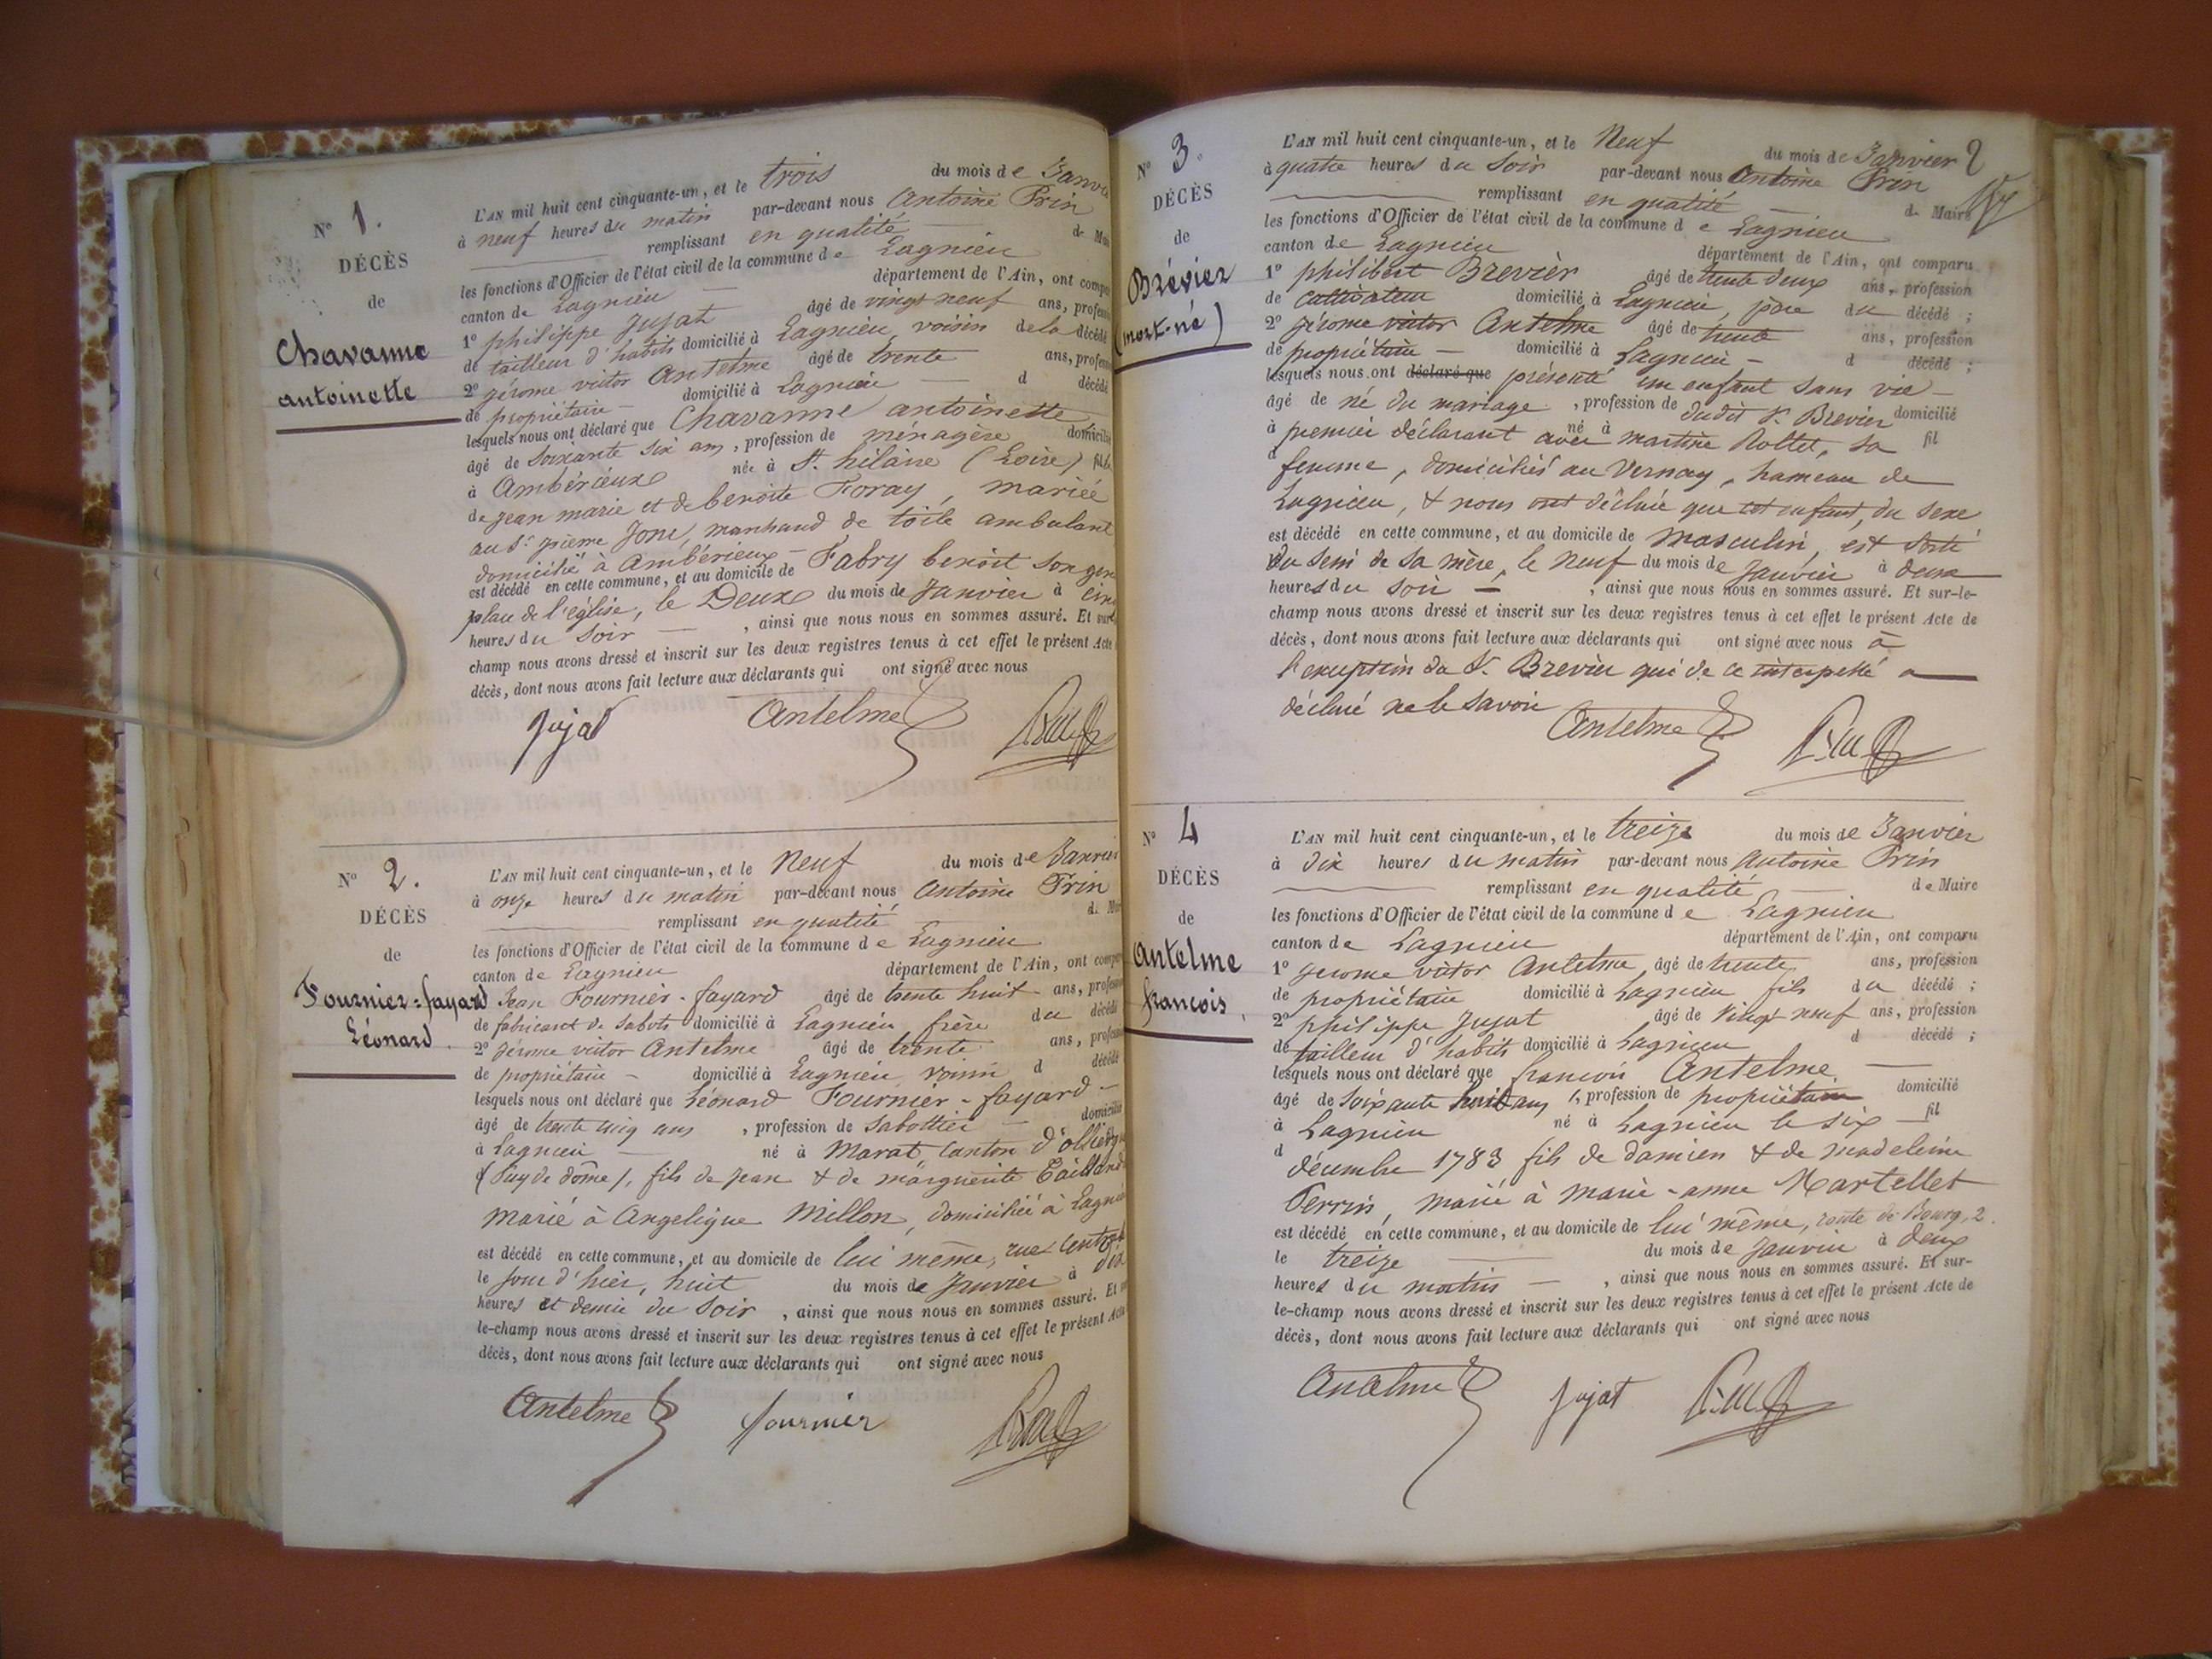 N° 1.
DÉCÈS
de
Chavanne
antoinette
L'AN mil huit cent cinquante-un, et le trois du mois de Janvier
à neuf heures du matin par-devant nous Antoine Prin
remplissant en qualité de Maire
les fonctions d'Officier de l'état civil de la commune de Lagnieu
canton de Lagnieu département de l'Ain, ont comparu
1° philippe Jujat âgé de vingt neuf ans, profession
de tailleur d'habits domicilié à Lagnieu, voisin de la décédé
2° gérome victor Antelme âgé de trente ans, profession
de propriétaire — domicilié à Lagnieu — d décédé
lesquels nous ont déclaré que Chavanne antoinette
âgé de soixante six ans, profession de ménagère domicilié
à Ambérieux née à St. hilaire (Loire) fille
de jean marie et de benoite Foray, mariée
au Sr. pierre Jone, marchand de toile ambulant
domicilié à Ambérieux — Fabry benoit son gen
est décédé en cette commune, et au domicile de
place de l'église, le Deux du mois de Janvier à cinq
heures du soir —, ainsi que nous nous en sommes assuré. Et sur-le-
champ nous avons dressé et inscrit sur les deux registres tenus à cet effet le présent Acte
décès, dont nous avons fait lecture aux déclarants qui ont signé avec nous
Jujat Antelme
N° 2.
DÉCÈS
de
Fournier=fayard
Léonard
L'AN mil huit cent cinquante-un, et le Neuf du mois de Janvier
à onze heures du matin par-devant nous Antoine Prin
remplissant en qualité de Maire
les fonctions d'Officier de l'état civil de la commune de Lagnieu
canton de Lagnieu département de l'Ain, ont comparu
Jean Fournier-fayard âgé de trente huit ans, profession
de fabricant de sabots domicilié à Lagnieu frère du décédé
2° gérome victor Antelme âgé de trente ans, profession
de propriétaire — domicilié à Lagnieu voisin d décédé
lesquels nous ont déclaré que Léonard Fournier-fayard —
âgé de trente cinq ans, profession de sabottier — domicilié
à Lagnieu — né à Marat, canton d'olliergues
(Puy de dôme), fils de jean & de marguerite Taillandi
marié à Angelique Millon, domiciliée à Lagnieu
est décédé en cette commune, et au domicile de lui même, rue centrale
le jour d'hier, huit du mois de Janvier à dix
heures et demie du soir, ainsi que nous nous en sommes assuré. Et sur-
le-champ nous avons dressé et inscrit sur les deux registres tenus à cet effet le présent Acte
décès, dont nous avons fait lecture aux déclarants qui ont signé avec nous
Antelme fournier
2
N° 3.
DÉCÈS
de
Brévier
(mort-né)
L'AN mil huit cent cinquante-un, et le Neuf du mois de Janvier
à quatre heures du soir par-devant nous Antoine Prin
remplissant en qualité — de Maire
les fonctions d'Officier de l'état civil de la commune de Lagnieu
canton de Lagnieu département de l'Ain, ont comparu
1° philibert Brevier âgé de trente deux ans, profession
de cultivateur domicilié à Lagnieu, père du décédé ;
2° gérome victor Antelme âgé de trente ans, profession
de propriétaire — domicilié à Lagnieu — d décédé ;
lesquels nous ont déclaré que présenté un enfant sans vie —
âgé de né du mariage, profession de dudit Sr. Brevier domicilié
à premier déclarant avec né à martine Rollet, sa fil
d femme, domiciliés au Vernay, hameau de
Lagnieu, & nous ont déclaré que cet enfant, du sexe
est décédé en cette commune, et au domicile de masculin, est sorti
du sein de sa mère, le neuf du mois de Janvier à deux
heures du soir —, ainsi que nous nous en sommes assuré. Et sur-le-
champ nous avons dressé et inscrit sur les deux registres tenus à cet effet le présent Acte de
décès, dont nous avons fait lecture aux déclarants qui ont signé avec nous à
l'exception du Sr. Brevier qui de ce interpellé a
déclaré ne le savoir
Antelme
N° 4
DÉCÈS
de
Antelme
françois
L'AN mil huit cent cinquante-un, et le treize du mois de Janvier
à dix heures du matin par-devant nous Antoine Prin
remplissant en qualité — de Maire
les fonctions d'Officier de l'état civil de la commune de Lagnieu
canton de Lagnieu département de l'Ain, ont comparu
1° gerome victor Antelme, âgé de trente ans, profession
de propriétaire domicilié à Lagnieu fils du décédé ;
2° philippe Jujat âgé de vingt neuf ans, profession
de tailleur d'habits domicilié à Lagnieu d décédé ;
lesquels nous ont déclaré que françois Antelme —
âgé de soixante huit ans, profession de propriétaire domicilié
à Lagnieu né à Lagnieu le six — fil
d décembre 1783 fils de damien & de madeleine
Perrin, marié à marie-anne Martellet
est décédé en cette commune, et au domicile de lui même, route de Bourg, 2.
le treize — du mois de Janvier à deux
heures du matin —, ainsi que nous nous en sommes assuré. Et sur-
le-champ nous avons dressé et inscrit sur les deux registres tenus à cet effet le présent Acte de
décès, dont nous avons fait lecture aux déclarants qui ont signé avec nous
Antelme Jujat